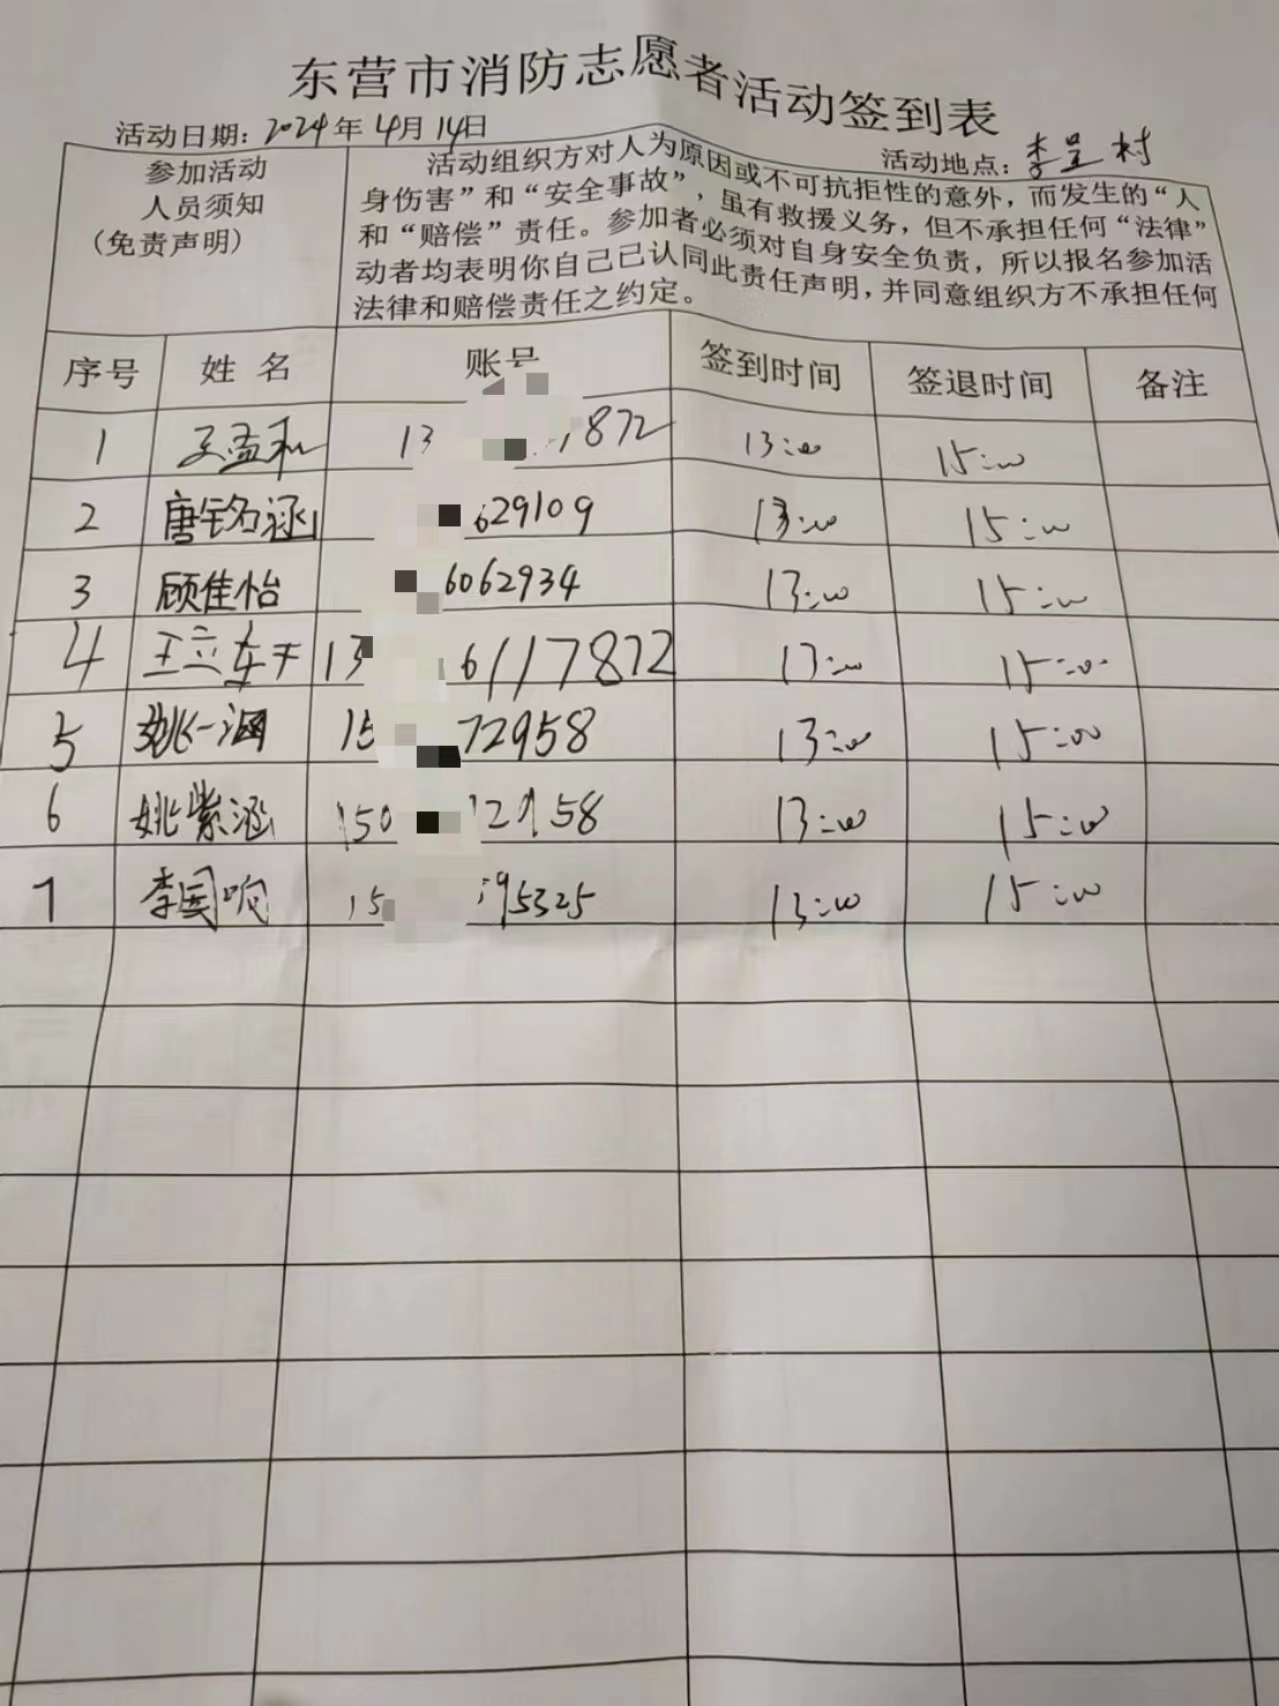 东营市消防志愿者活动签到表
活动日期：2024年4月14日 活动地点：李呈村
参加活动
人员须知
（免责声明）
活动组织方对人为原因或不可抗拒性的意外，而发生的“人
身伤害”和“安全事故”，虽有救援义务，但不承担任何“法律”
和“赔偿”责任。参加者必须对自身安全负责，所以报名参加活
动者均表明你自己已认同此责任声明，并同意组织方不承担任何
法律和赔偿责任之约定。
序号 姓名 账号 签到时间 签退时间 备注
1 王孟和 13 872 13:00 15:00
2 唐铭涵 629109 13:00 15:00
3 顾佳怡 6062934 13:00 15:00
4 王立东 13 6117872 13:00 15:00
5 姚一涵 15 72958 13:00 15:00
6 姚紫涵 150 2958 13:00 15:00
7 李国响 15 95325 13:00 15:00